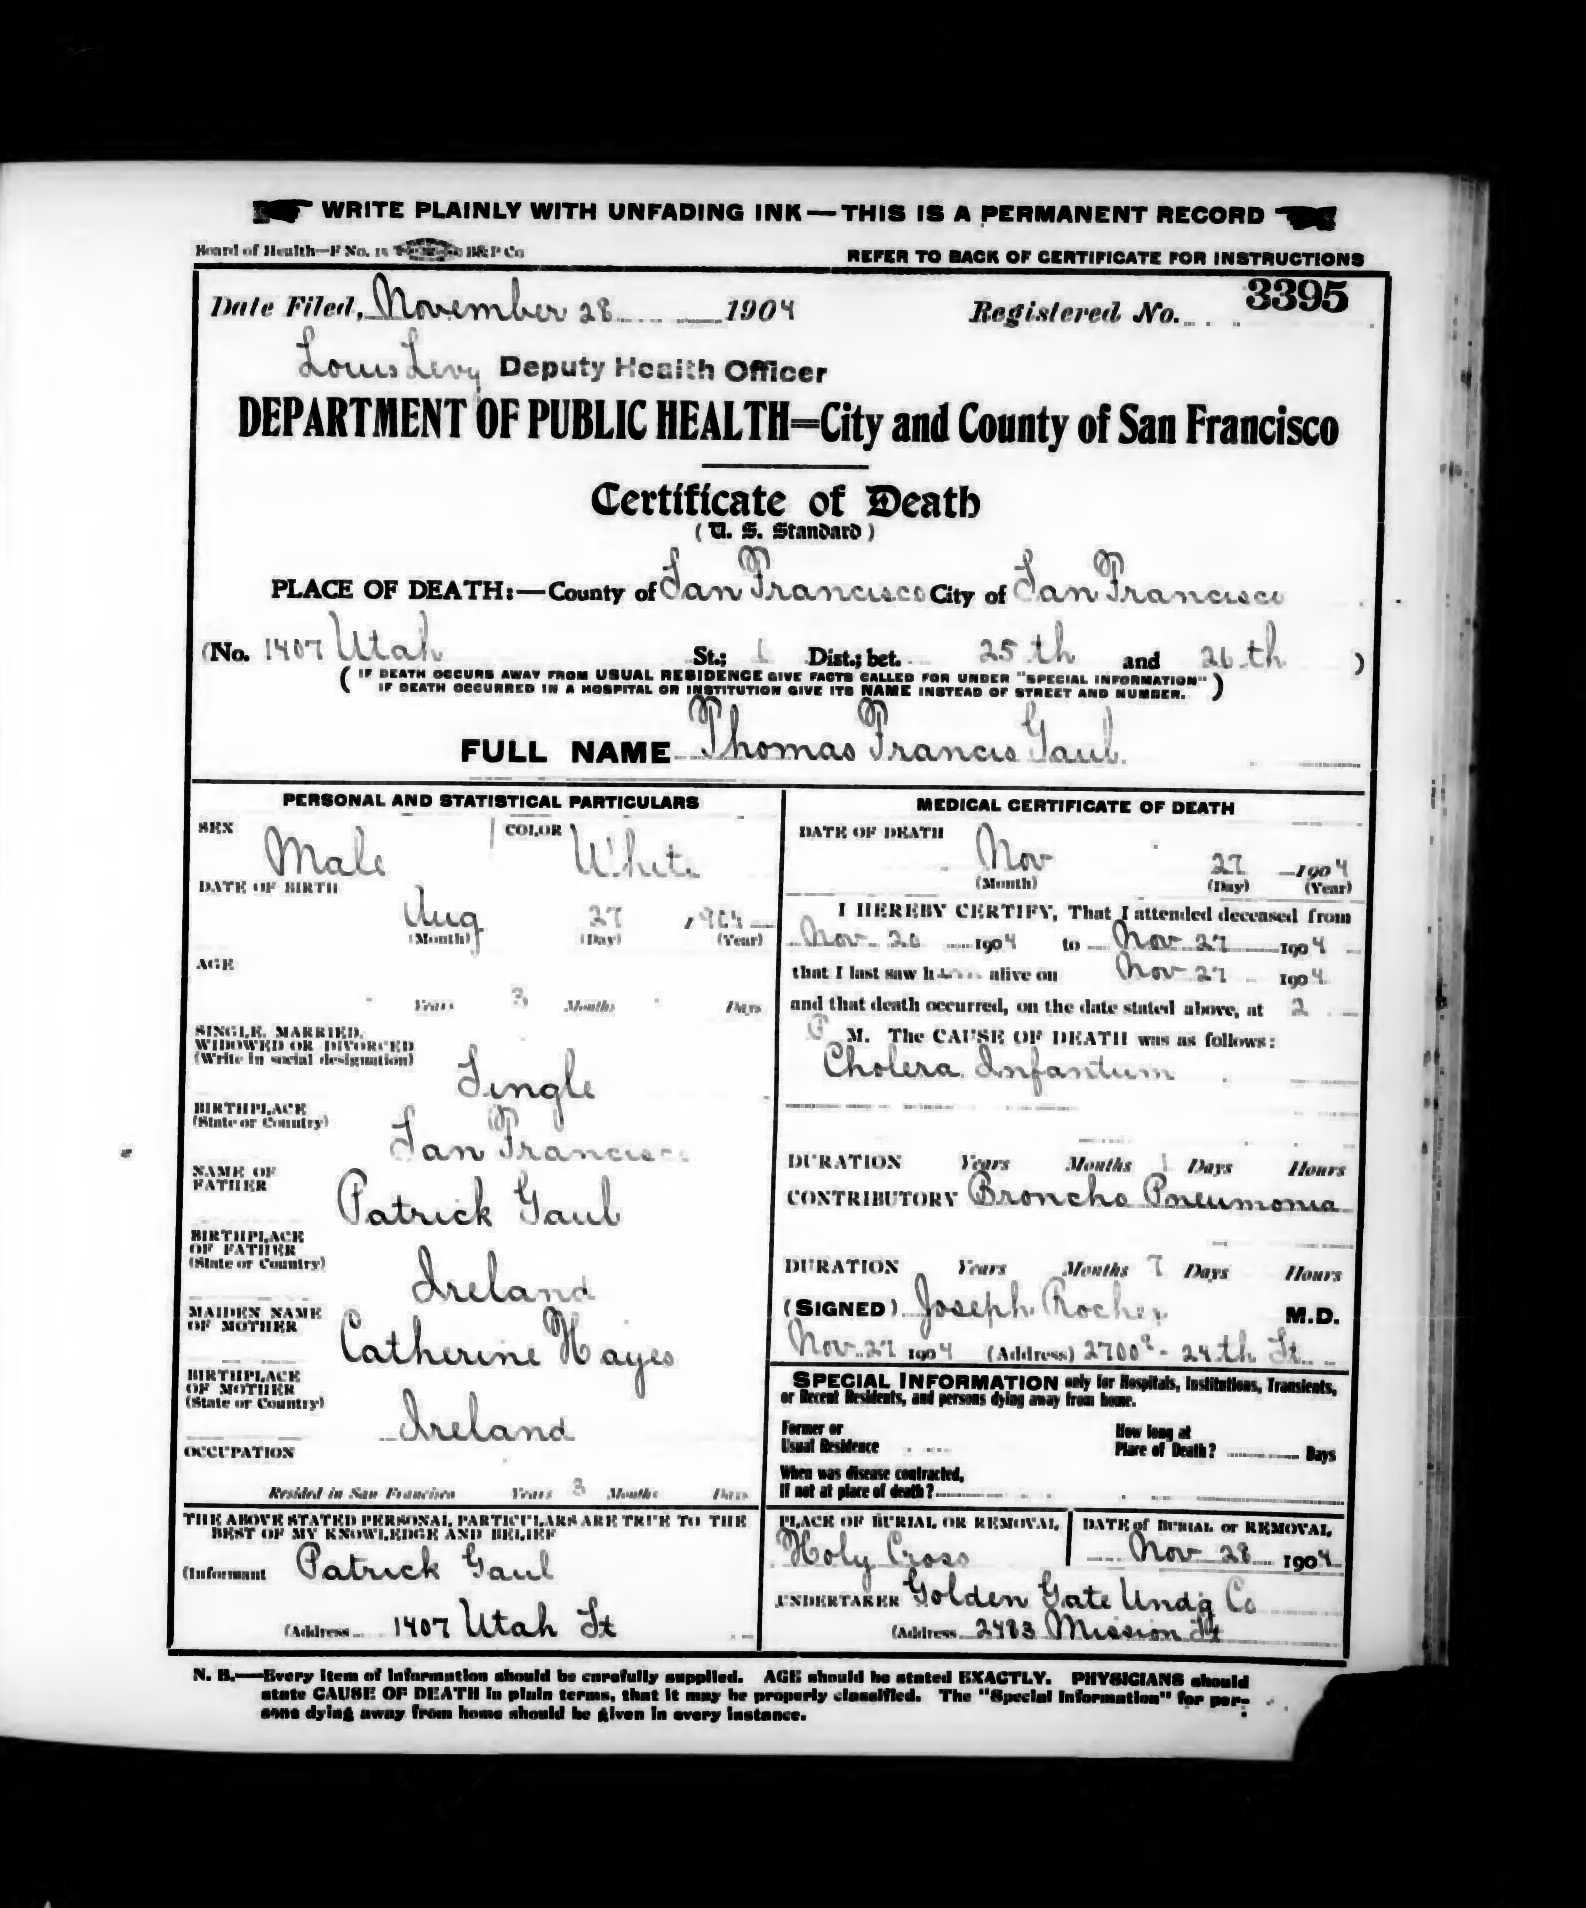 WRITE PLAINLY WITH UNFADING INK—THIS IS A PERMANENT RECORD
Board of Health—F No. 15 B&P Co REFER TO BACK OF CERTIFICATE FOR INSTRUCTIONS
Date Filed, November 28 1904 Registered No. 3395
Louis Levy Deputy Health Officer
DEPARTMENT OF PUBLIC HEALTH=City and County of San Francisco
Certificate of Death
(U. S. Standard)
PLACE OF DEATH:—County of San Francisco City of San Francisco
(No. 1407 Utah St.; Dist.; bet. 25th and 26th )
( IF DEATH OCCURS AWAY FROM USUAL RESIDENCE GIVE FACTS CALLED FOR UNDER "SPECIAL INFORMATION"
IF DEATH OCCURRED IN A HOSPITAL OR INSTITUTION GIVE ITS NAME INSTEAD OF STREET AND NUMBER. )
FULL NAME Thomas Francis Gaul
PERSONAL AND STATISTICAL PARTICULARS
SEX Male COLOR White
DATE OF BIRTH
Aug 27 1904
(Month) (Day) (Year)
AGE
Years 3 Months Days
SINGLE, MARRIED,
WIDOWED OR DIVORCED
(Write in social designation)
Single
BIRTHPLACE
(State or Country)
San Francisco
NAME OF
FATHER
Patrick Gaul
BIRTHPLACE
OF FATHER
(State or Country)
Ireland
MAIDEN NAME
OF MOTHER
Catherine Hayes
BIRTHPLACE
OF MOTHER
(State or Country)
Ireland
OCCUPATION
Resided in San Francisco Years 3 Months Days
THE ABOVE STATED PERSONAL PARTICULARS ARE TRUE TO THE
BEST OF MY KNOWLEDGE AND BELIEF
(Informant Patrick Gaul
(Address 1407 Utah St
MEDICAL CERTIFICATE OF DEATH
DATE OF DEATH
Nov 27 1904
(Month) (Day) (Year)
I HEREBY CERTIFY, That I attended deceased from
Nov 20 1904 to Nov 27 1904
that I last saw h alive on Nov 27 1904
and that death occurred, on the date stated above, at 2
P M. The CAUSE OF DEATH was as follows:
Cholera Infantum
DURATION Years Months 1 Days Hours
CONTRIBUTORY Broncho Pneumonia
DURATION Years Months 7 Days Hours
(SIGNED) Joseph M.D.
Nov 27 1904 (Address) 2700 - 24th St
SPECIAL INFORMATION only for Hospitals, Institutions, Transients,
or Recent Residents, and persons dying away from home.
Former or
Usual Residence
How long at
Place of Death? Days
When was disease contracted,
If not at place of death?
PLACE OF BURIAL OR REMOVAL
Holy Cross
DATE of BURIAL or REMOVAL
Nov 28 1904
UNDERTAKER Golden Gate Undg Co
(Address 2483 Mission St
N. B.—Every item of information should be carefully supplied. AGE should be stated EXACTLY. PHYSICIANS should
state CAUSE OF DEATH in plain terms, that it may be properly classified. The "Special Information" for per-
sons dying away from home should be given in every instance.